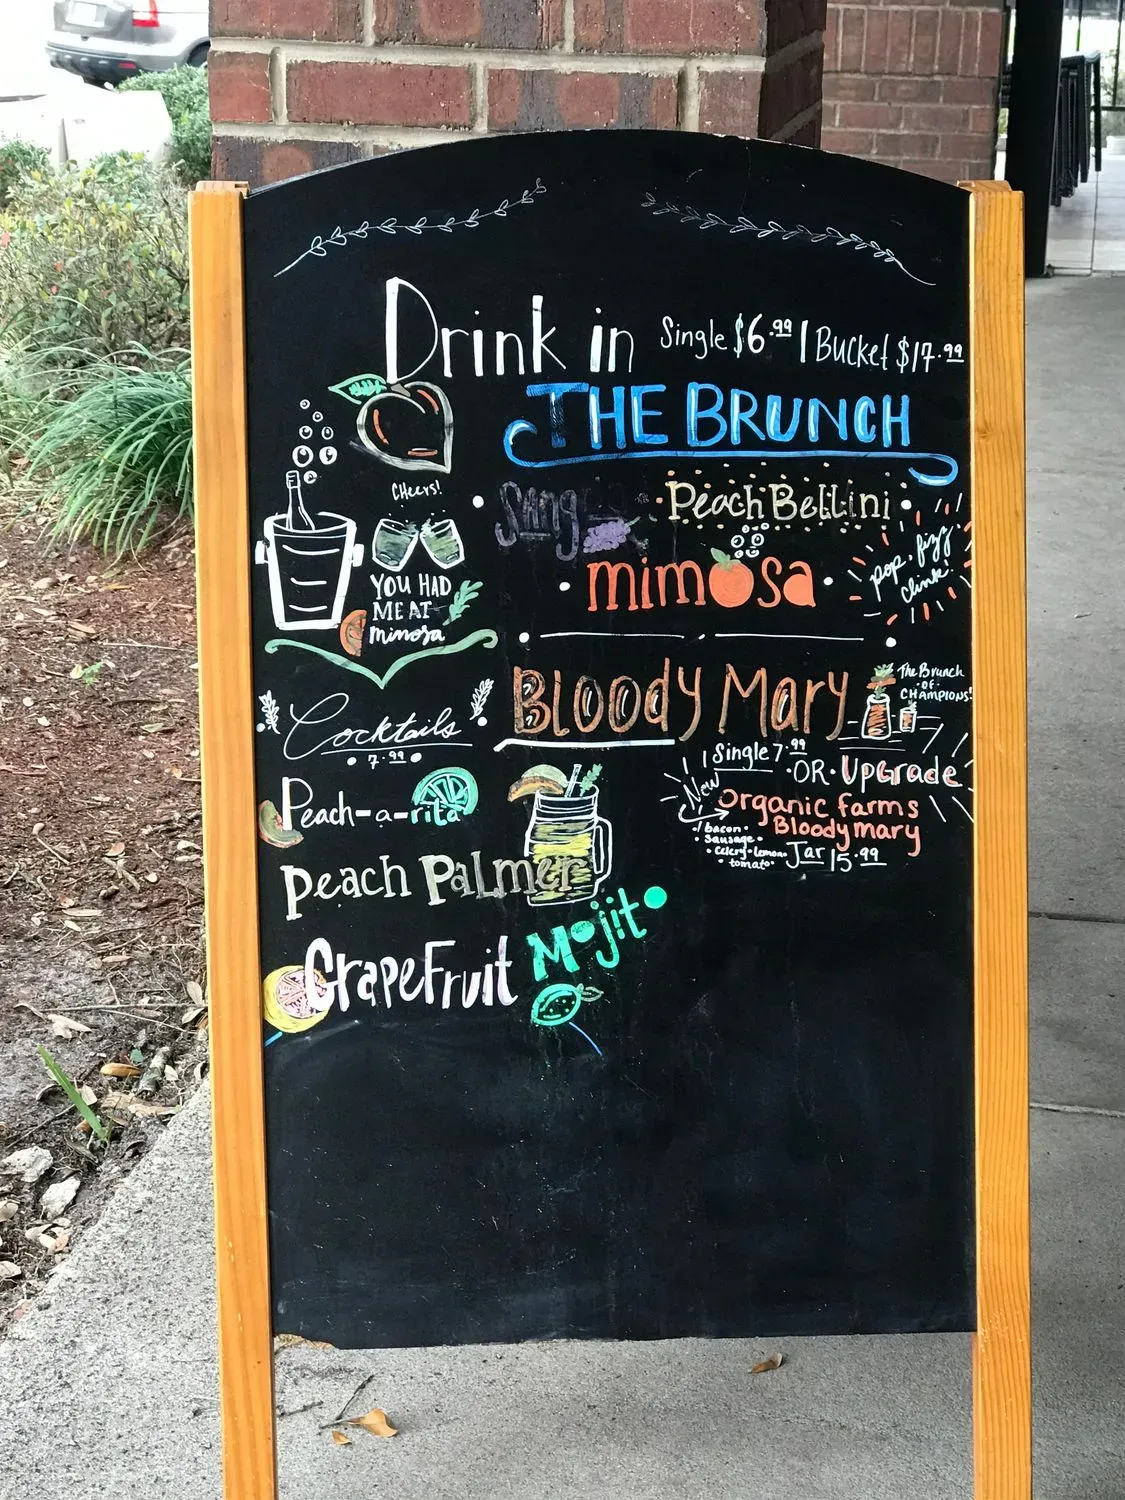 Drink in Single $6.99 | Bucket $17.99
THE BRUNCH
Peach Bellini
mimosa
pop, fizz
clink!
Cheers!
YOU HAD
ME AT
mimosa
Bloody Mary
The Brunch
-of-
CHAMPIONS!
Single 7.99
-OR- Upgrade
New Organic farms
Bloody mary
Jar 15.99
w/ bacon
• Sausage •
• Celery • Lemon •
tomato •
Cocktails
• 7.99 •
Peach-a-rita
Peach Palmer
GrapeFruit Mojito